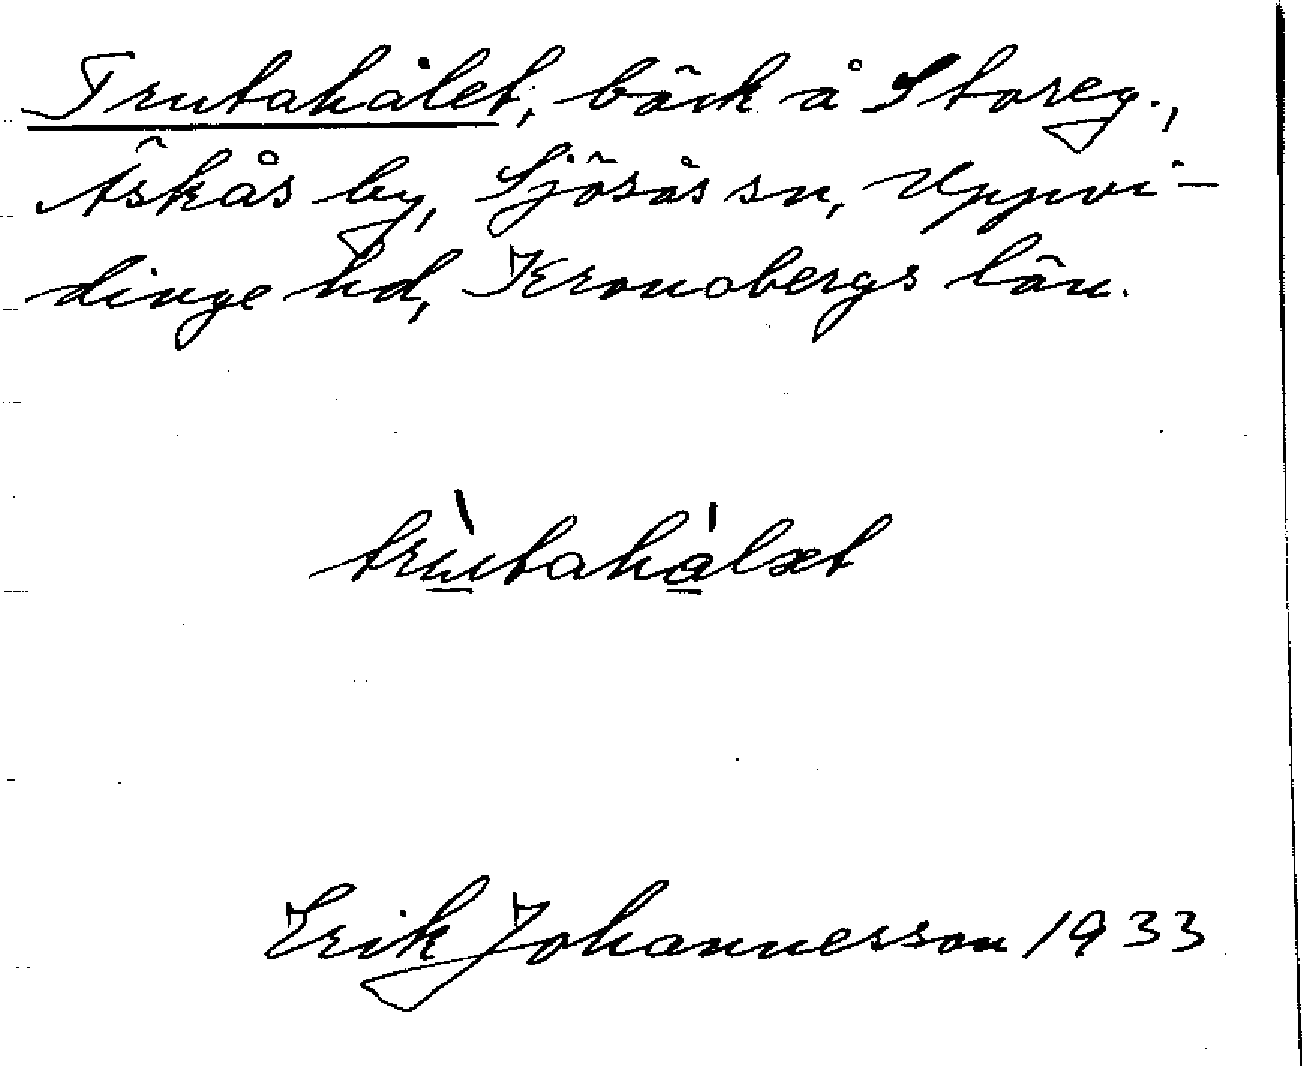 Trutahålet, bäck å Storeg.,
Äskås by, Sjösås sn, Uppvi-
dinge hd, Kronobergs län.
trùtahålæt
Erik Johannesson 1933